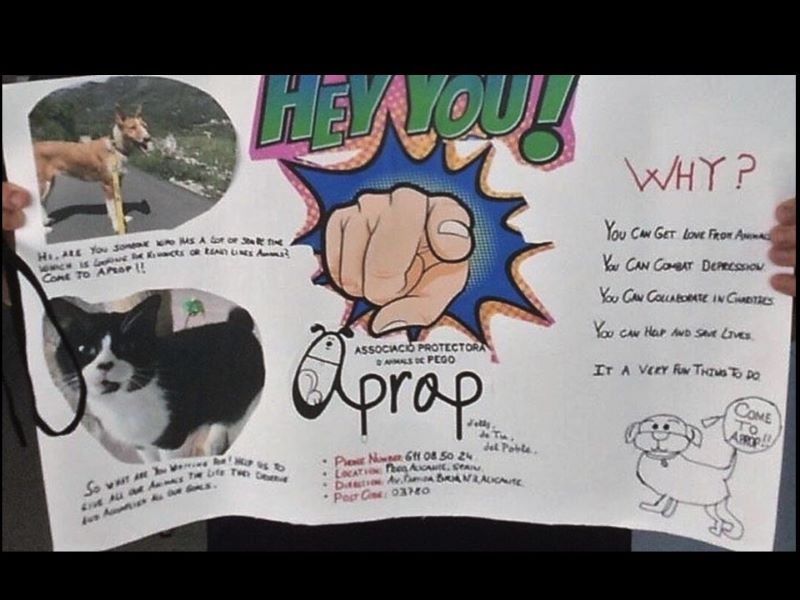 HEY YOU!
HI, ARE YOU SOMEONE WHO HAS A LOT OF TIME
WHICH IS LOOKING FOR OR ANIMALS?
COME TO APROP !!
SO WHAT ARE YOU WAITING FOR! HELP US TO
GIVE ALL OUR ANIMALS THE LIFE THEY DESERVE
AND ACCOMPLISH ALL OUR GOALS.
ASSOCIACIÓ PROTECTORA
D'ANIMALS DE PEGO
aprop
d'ells,
de Tu,
del Poble.
• PHONE NUMBER: 611 08 50 24
• LOCATION: PEGO, ALICANTE, SPAIN.
• DIRECTION: AV. ALICANTE.
• POST CODE: 03780
WHY?
YOU CAN GET LOVE FROM ANIMALS
YOU CAN COMBAT DEPRESSION.
YOU CAN COLLABORATE IN CHARITIES
YOU CAN HELP AND SAVE LIVES.
IT A VERY FUN THING TO DO
COME
TO
APROP!!